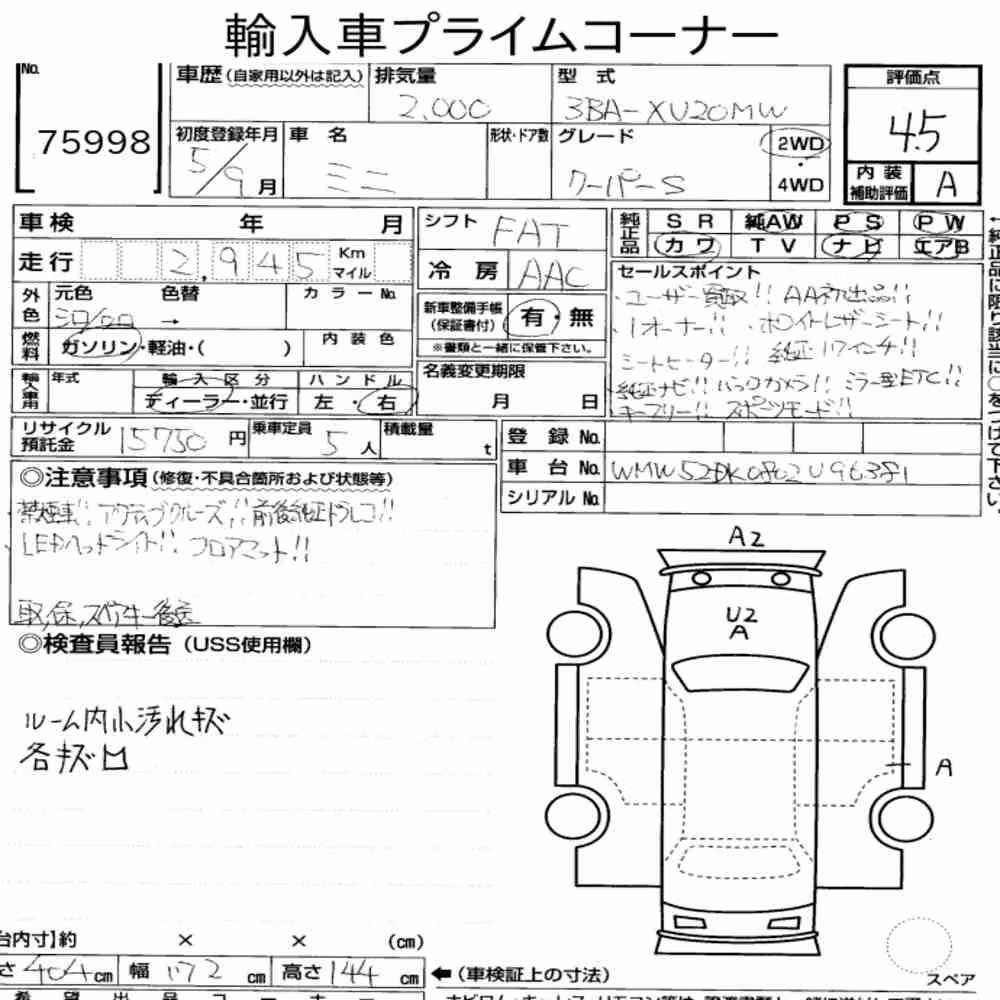 輸入車プライムコーナー
No.
75998
車歴(自家用以外は記入)
排気量
2,000
型 式
3BA-XU20MW
評価点
4.5
初度登録年月
5/9月
車 名
ミニ
形状・ドア数
グレード
クーパーS
2WD
・
4WD
内 装
補助評価
A
車検 年 月
走行 2,945 Km
マイル
シフト FAT
冷 房 AAC
純正品
SR 純AW PS PW
カワ TV ナビ エアB
外色
元色 色替
シロ/クロ →
カラーNo.
燃料
ガソリン・軽油・( )
内 装 色
新車整備手帳
(保証書付)
有・無
※書類と一緒に保管下さい。
セールスポイント
ユーザー買取!! AA初出品!!
1オーナー!! ホワイトレザーシート!!
シートヒーター!! 純正17インチ!!
純正ナビ!! バックカメラ!! ミラー型ETC!!
キーフリー!! スポーツモード!!
輸入車用
年式
輸 入 区 分
ディーラー・並行
ハ ン ド ル
左 ・ 右
名義変更期限
月 日
リサイクル
預託金
15750円
乗車定員
5人
積載量
t
登 録 No.
車 台 No.
シリアル No.
◎注意事項(修復・不具合箇所および状態等)
禁煙車!! アクティブクルーズ!! 前後純正ドラレコ!!
LEDヘッドライト!! フロアマット!!
取,保,スペアキー後送
◎検査員報告(USS使用欄)
ルーム内小汚れキズ
各キズ凹
A2
U2
A
A
台内寸】約 × × (cm)
さ 404cm 幅 172cm 高さ 144cm
←(車検証上の寸法)
スペア